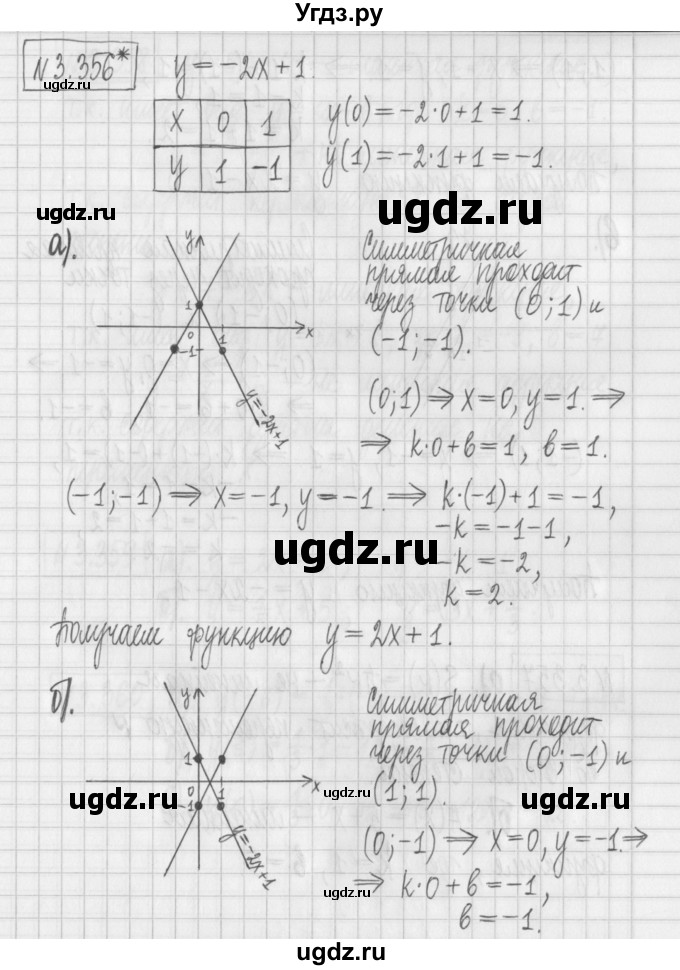 Угдз.ру
№3.356*
ugdz.ru
y=-2x+1.
x 0 1
y 1 -1
y(0)=-2·0+1=1.
y(1)=-2·1+1=-1.
ugdz.ru
ugdz.ru
а).
y
1
0
1
x
-1
y=-2x+1
Симметричная
прямая проходит
через точки (0;1) и
(-1;-1).
(0;1)⇒x=0, y=1.⇒
⇒ k·0+b=1, b=1.
(-1;-1)⇒x=-1, y=-1.⇒k·(-1)+1=-1,
-k=-1-1,
-k=-2,
k=2.
ugdz.ru
ugdz.ru
Получаем функцию y=2x+1.
б).
y
1
0
1
x
-1
y=-2x+1
ugdz.ru
ugdz.ru
ugdz.ru
Симметричная
прямая проходит
через точки (0;-1) и
(1;1).
(0;-1)⇒x=0, y=-1.⇒
⇒ k·0+b=-1,
b=-1.
ugdz.ru
ugdz.ru